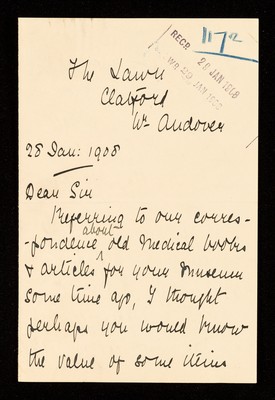 117a
RECD 29 JAN 1908
The Lawn
Clatford
Nr. Andover
28 Jan: 1908
Dear Sir
Referring to our corres-
-pondence about old Medical books
& articles for your Museum
some time ago, I thought
perhaps you would know
the value of some items